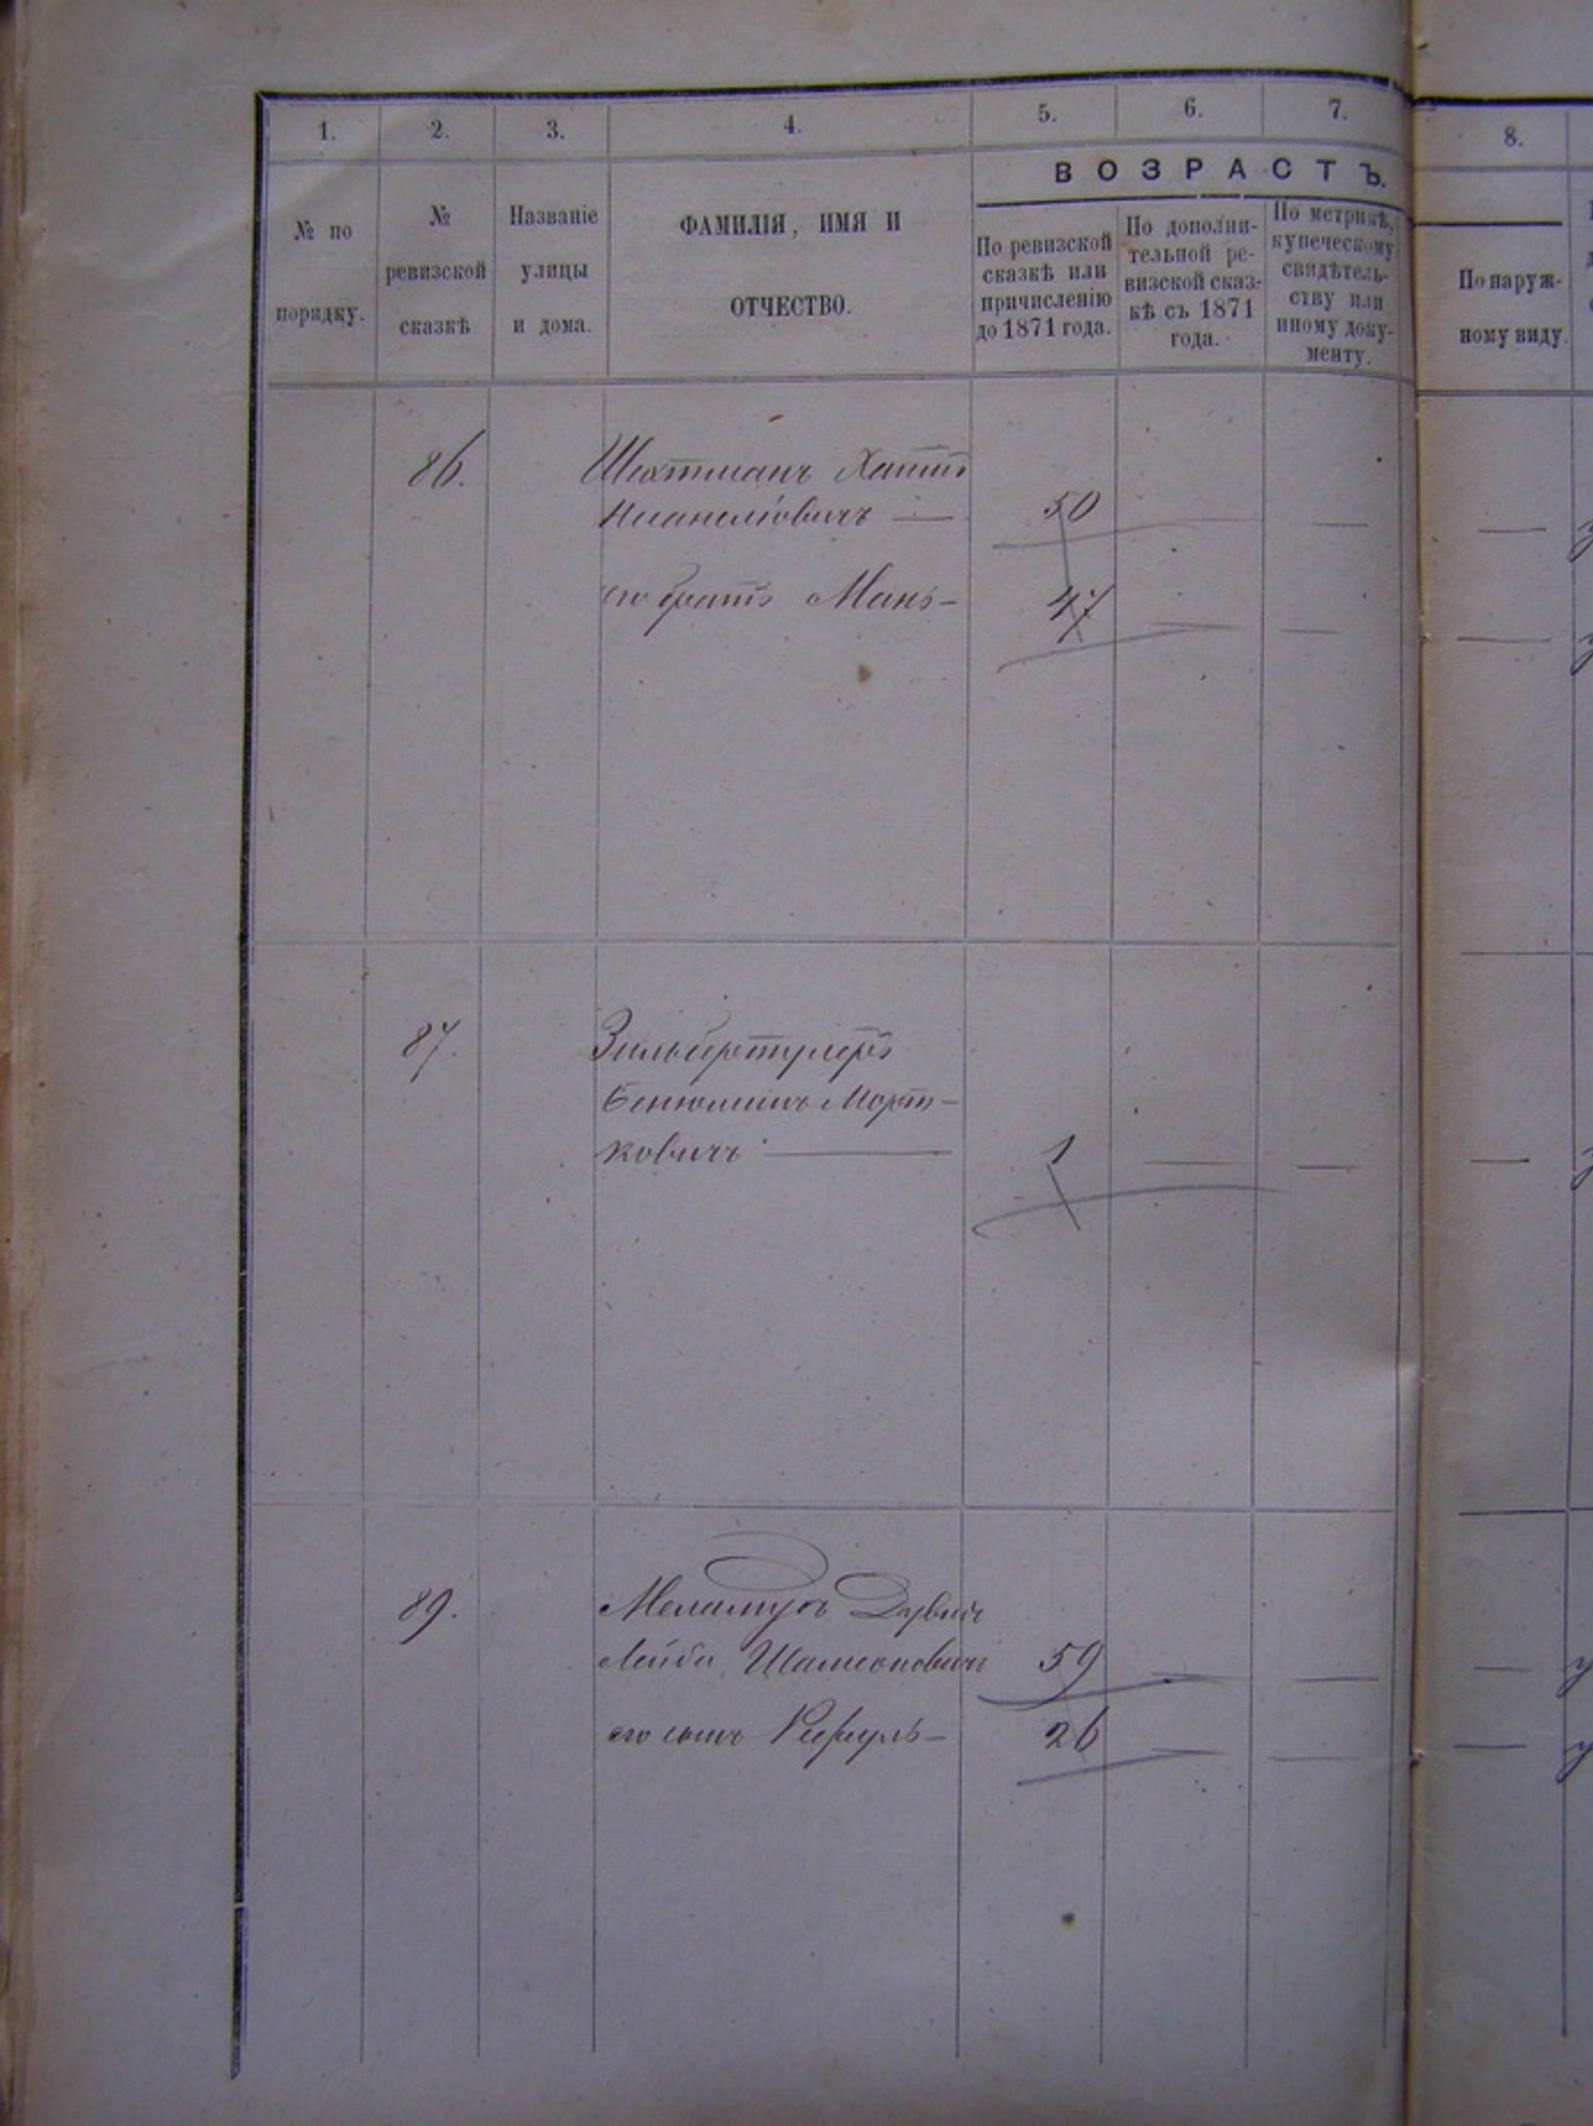 1. 2. 3. 4. 5. 6. 7. 8.
ВОЗРАСТЪ.
№ по порядку.
№ ревизской сказкѣ
Названіе улицы и дома.
ФАМИЛІЯ, ИМЯ И
ОТЧЕСТВО.
По ревизской
сказкѣ или
причисленію
до 1871 года.
По дополни-
тельной ре-
визской сказ-
кѣ съ 1871
года.
По метрикѣ,
купеческому
свидѣтель-
ству или
иному доку-
менту.
По наруж-
ному виду.
86. Шехтманъ
— 50 — — —
его братъ Манъ - 47 — — —
87.
Бенюминъ Морт-
ковичъ — 1 — — —
89. Меламудъ Дувидъ
Лейба 59 — — —
его сынъ - 26 — — —